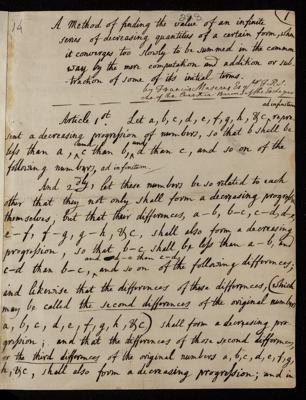 14
1
A Method of finding the value of an infinite
series of decreasing quantities of a certain form, when
it converges too slowly to be summed in the common
way by the mere computation and addition or sub-
traction of some of its initial terms.
by Francis Maseres Esqr. F.R.S.
Article 1st. Let a, b, c, d, e, f, g, h, &c, repre-
ad infinitum
sent a decreasing progression of numbers, so that b shall be
less than a, and c than b, and d than c, and so on of the
following numbers, ad infinitum.
And 2dly, let these numbers be so related to each
other that they not only shall form a decreasing progress.
themselves, but that their differences, a-b, b-c, c-d, d-e,
e-f, f-g, g-h, &c, shall also form a decreasing
progression, so that b-c shall be less than a-b, and
c-d than b-c, and d-e than c-d, and so on of the following differences;
and likewise that the differences of these differences, (which
may be called the second differences of the original numbers
a, b, c, d, e, f, g, h, &c) shall form a decreasing pro-
gression; and that the differences of those second differences,
or the third differences of the original numbers a, b, c, d, e, f, g,
h, &c, shall also form a decreasing progression; and in